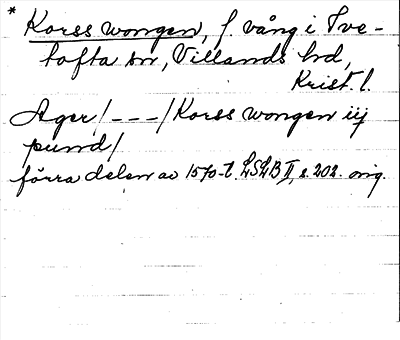 * Korss wongen, f. vång i Tve-
tofta sn, Villands hd,
Krist. l.
Ager/---/Korss wongen iij
pund/
förra delen av 1570-t. LSLB II, s. 202. orig.